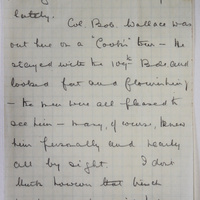 lately.
Col. Bob Wallace was
out here on a "Cook's" tour – He
stayed with the 109th Bde and
looked fat and flourishing
– the men were all pleased to
see him – many, of course, knew
him personally and nearly
all by sight. I dont
think however that